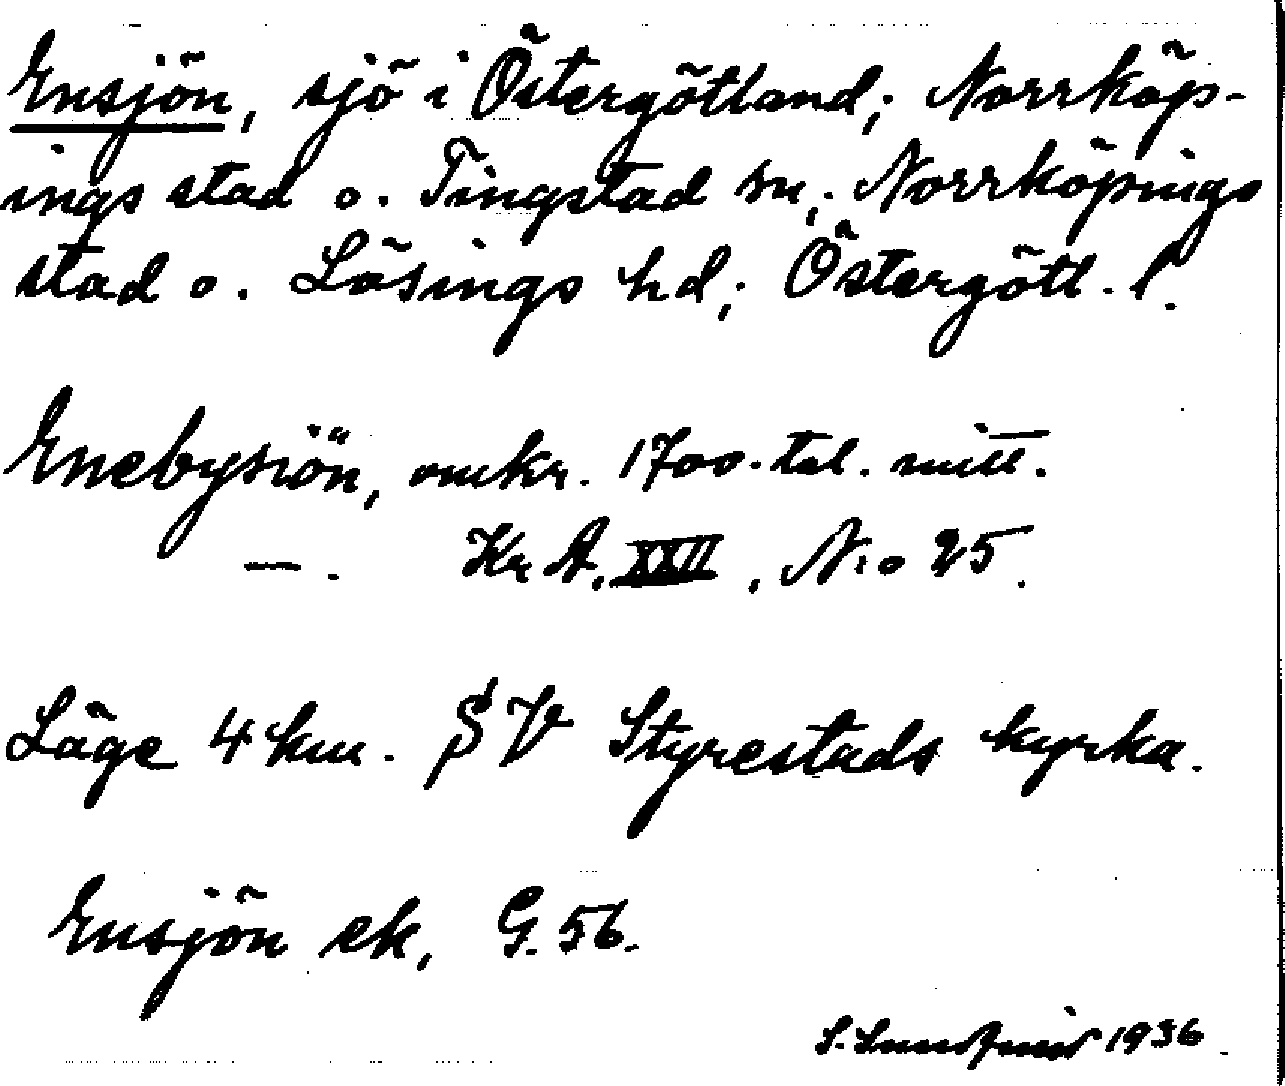 Ensjön, sjö i Östergötland; Norrköp-
ings stad o. Tingstad sn,; Norrköpings
stad o. Lösings hd; Östergötl. l.
Enebysiön, omkr. 1700-tal. mitt.
— . Kr. A. XXII, N:o 25.
Läge 4 km. SV Styrestads kyrka.
Ensjön ek, G. 56.
S. 1936